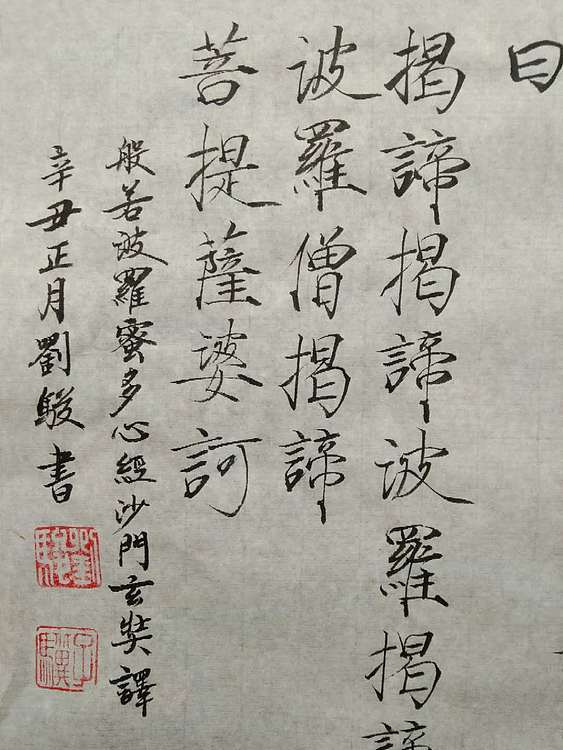 曰
揭諦揭諦波羅揭諦
波羅僧揭諦
菩提薩婆訶
般若波羅蜜多心經沙門玄奘譯
辛丑正月劉駿書